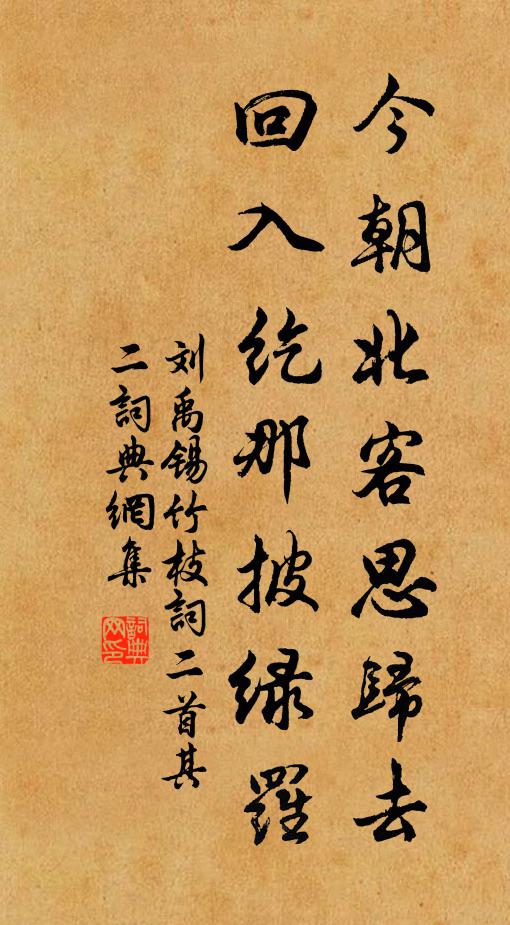 今朝北客思歸去
回入紇那披緑羅
刘禹锡竹枝詞二首其
二詞典網集
詞典网印